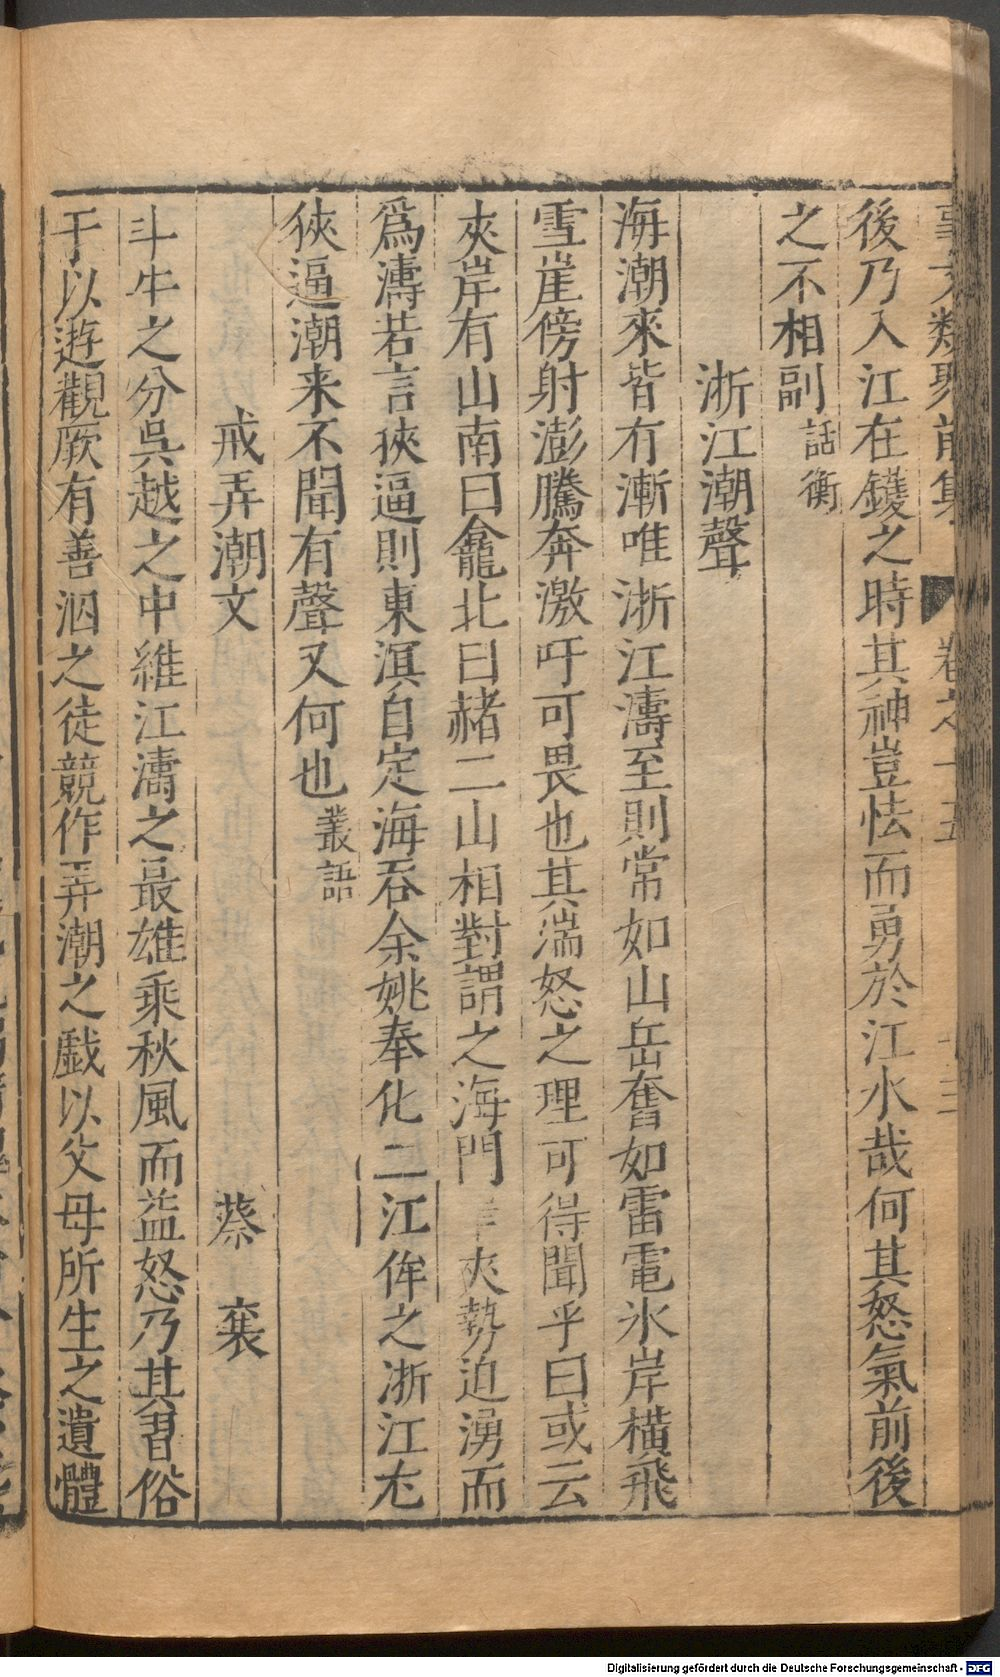 事文類聚前集 卷之十五 十三
後乃入江在鑊之時其神豈怯而勇於江水哉何其怒氣前後
之不相副 話衡
浙江潮聲
海潮來皆有漸唯浙江濤至則常如山岳奮如雷電氷岸橫飛
雪崖傍射澎騰奔激吁可畏也其湍怒之理可得聞乎曰或云
夾岸有山南曰龕北曰赭二山相對謂之海門岸夾勢迫湧而
爲濤若言狹逼則東溟自定海吞余姚奉化二江侔之浙江尤
狹逼潮来不聞有聲又何也 叢語
戒弄潮文 蔡襄
斗牛之分呉越之中維江濤之最雄乘秋風而益怒乃其習俗
于以遊觀厥有善泅之徒競作弄潮之戱以父母所生之遺體
Digitalisierung gefördert durch die Deutsche Forschungsgemeinschaft - DFG